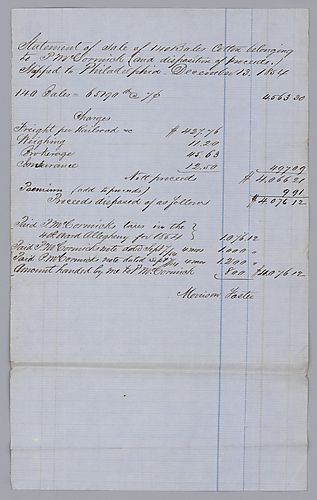 Statement of Sale of 140 Bales Cotton belonging
to P McCormick (and disposition of proceeds.)
Shipped to Philadelphia - December 13. 1854
140 Bales = 65190 lbs @ 7¢ 4563.30
Charges
Freight per Railroad &c $ 427.76
Weighing 11.20
Brokerage 45.63
Insurance 12.50 497.09
Nett proceeds $ 4,066.21
Premium (add to funds) 9.91
Proceeds disposed of as follows $ 4,076.12
Paid P. McCormicks taxes in the }
4th Ward Allegheny for 1854 } 1,076.12
Paid P. McCormicks note dated Sept 4 mos 1,000 "
Paid P McCormicks note dated Sept 4 mos 1,200 "
Amount handed by me to P. McCormick 800 $4,076.12
Morrison Foster